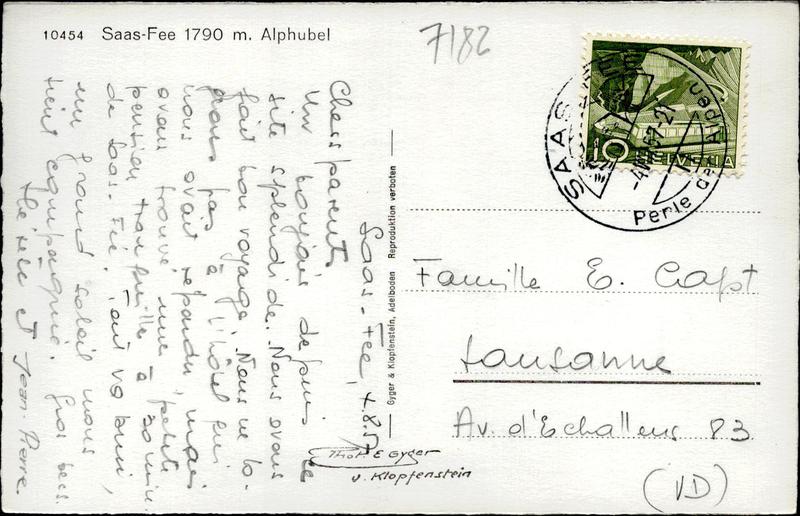 10454 Saas-Fee 1790 m. Alphubel
7182
SAAS-FEE
-4.VIII.57-21
Perle der Alpen
10
HELVETIA
Saas-Fee, 4.8.57
Chers parents
Un bonjour depuis ce
site splendide. Nous avons
fait bon voyage. Nous ne lo-
geons pas à l'hôtel qui
nous avait répondu, mais
avons trouvé une petite
pension tranquille à 20 min.
de Saas-Fée. Tout va bien,
un grand soleil nous
tient compagnie. Gros becs.
Thérèse et Jean-Pierre.
Gyger & Klopfenstein, Adelboden Reproduktion verboten
Phot. E Gyger
v. Klopfenstein
Famille E. Capt
Lausanne
Av. d'Echallens 83
(VD)